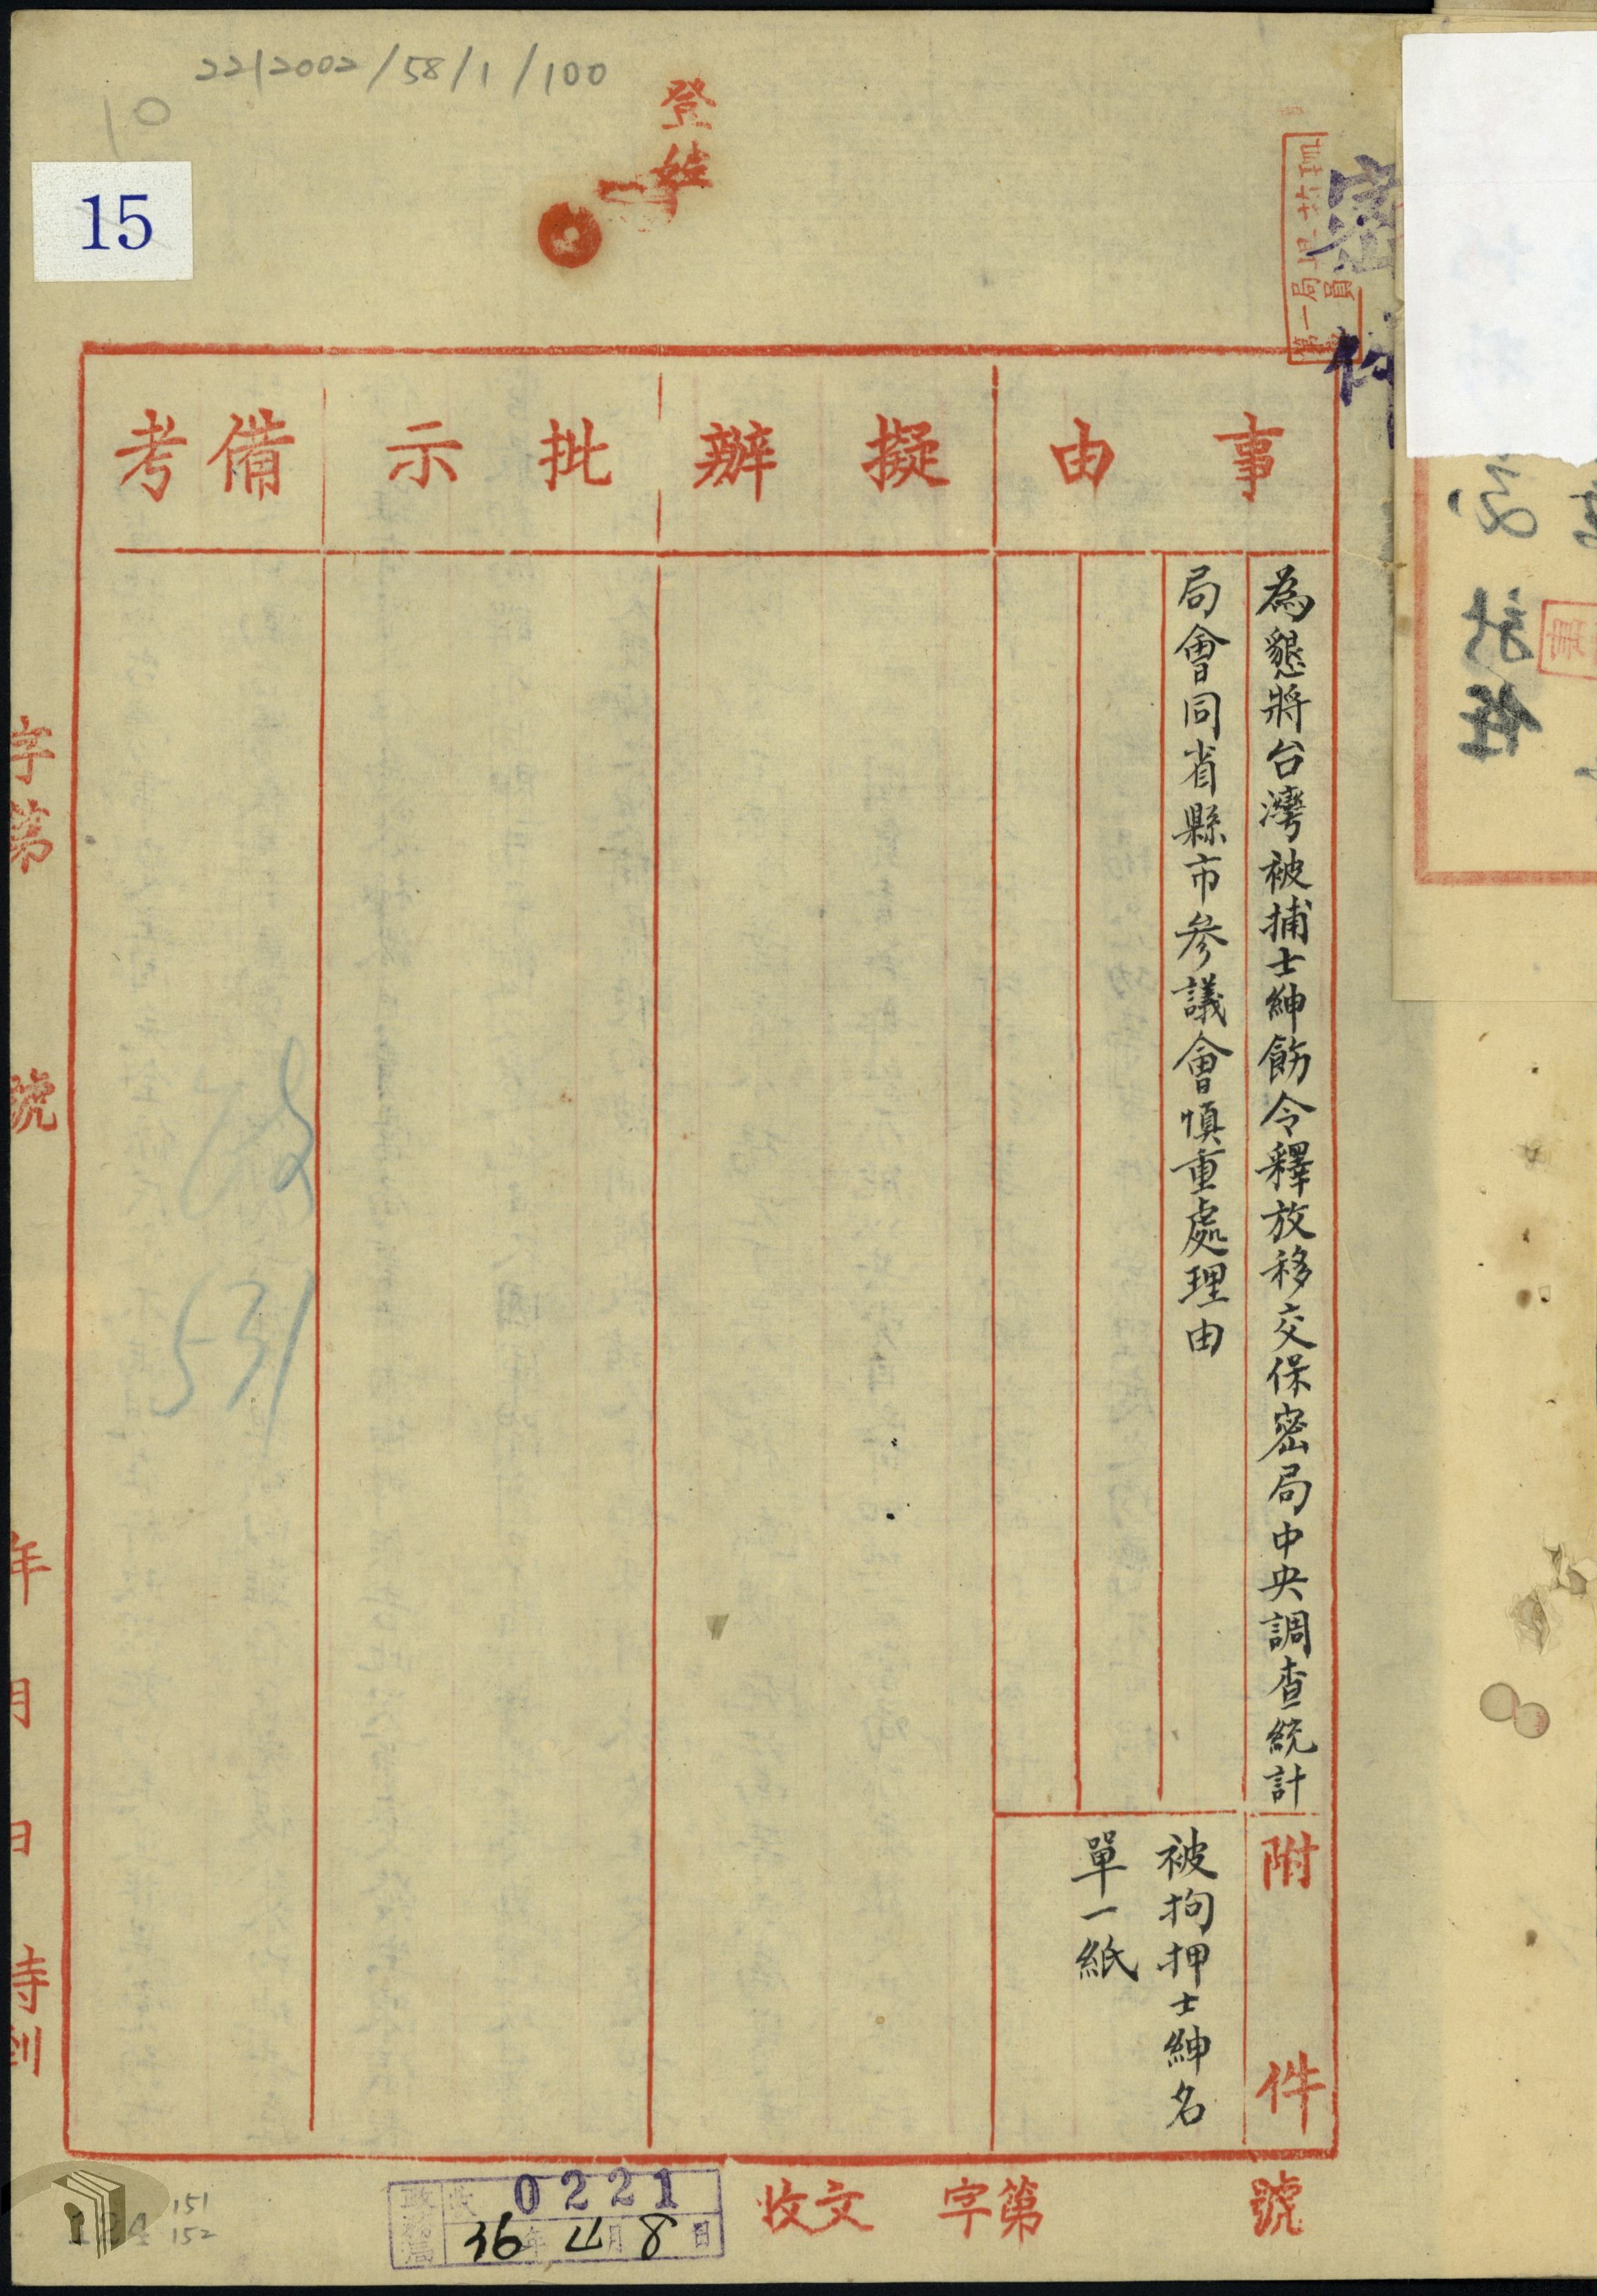 22/2002/58/1/100
10
15
登
密
事由
擬辦
批示
備考
為懇將台灣被捕士紳飭令釋放移交保密局中央調查統計
局會同省縣市參議會慎重處理由
附件
被拘押士紳名
單一紙
字第 號
年 月 日 時到
531
收文 字第 號
政務局
收 0221
36年4月8日
151
152